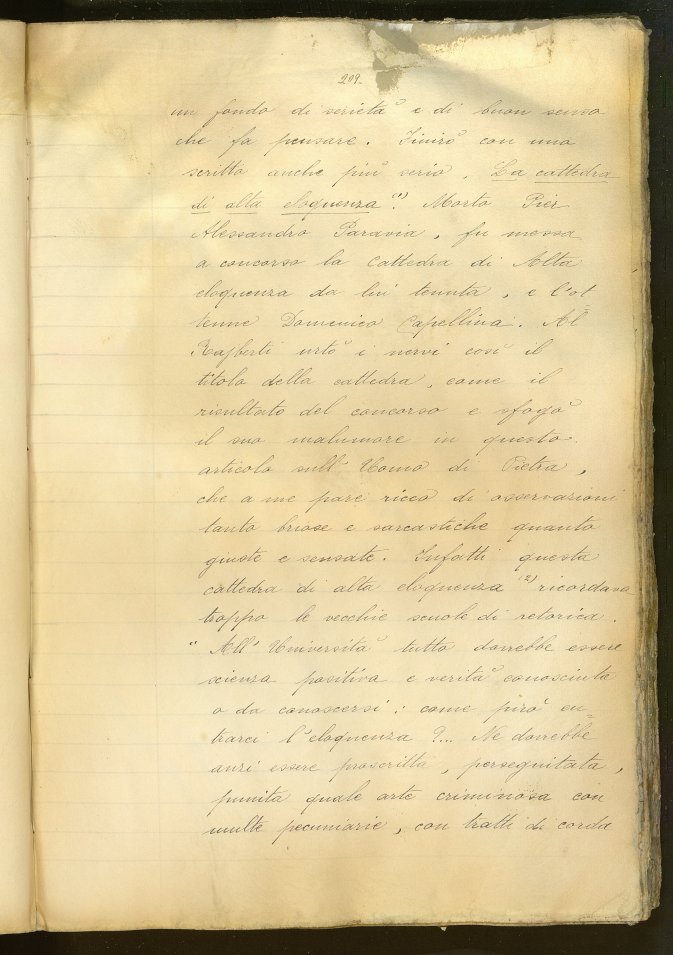 209.
un fondo di serietà e di buon senso
che fa pensare. Finirò con uno
scritto anche più serio, La cattedra
di alta eloquenza (1). Morto Pier
Alessandro Paravia, fu messa
a concorso la Cattedra di Alta
eloquenza da lui tenuta, e l'ot
tenne Domenico Capellina. Al
Rajberti urtò i nervi così il
titolo della cattedra, come il
risultato del concorso e sfogò
il suo malumore in questo
articolo sull' Uomo di Pietra,
che a me pare ricco di osservazioni
tanto briose e sarcastiche quanto
giuste e sensate. Infatti questa
cattedra di alta eloquenza (2) ricordava
troppo le vecchie scuole di retorica.
" All' Università tutto dovrebbe essere
scienza positiva e verità conosciuta
o da conoscersi: come però en=
trarci l'eloquenza?... Ne dovrebbe
anzi essere proscritta, perseguitata,
punita quale arte criminosa con
multe pecuniarie, con tratti di corda